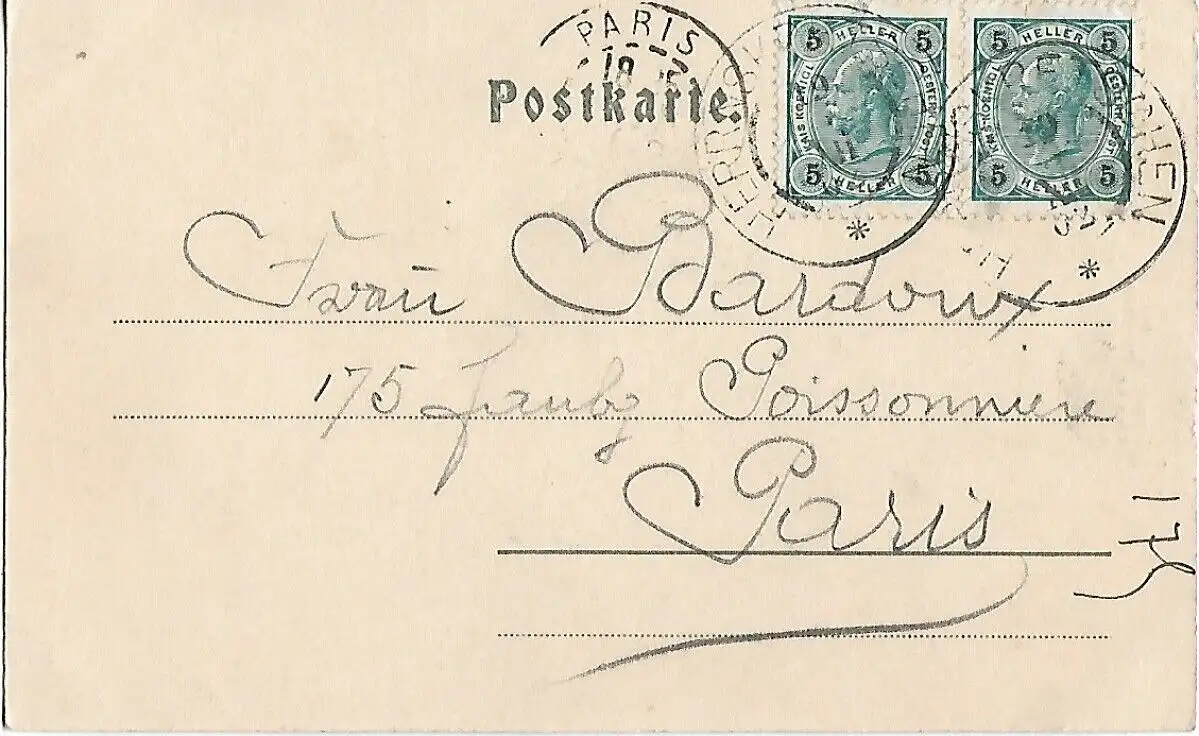 PARIS
18
Postkarte.
5 HELLER 5
KAIS.KOENIGL. OESTERR.POST
5 HELLER 5
5 HELLER 5
KAIS.KOENIGL. OESTERR.POST
5 HELLER 5
Frau Bardoux
175 faubg Poissonniere
Paris
175